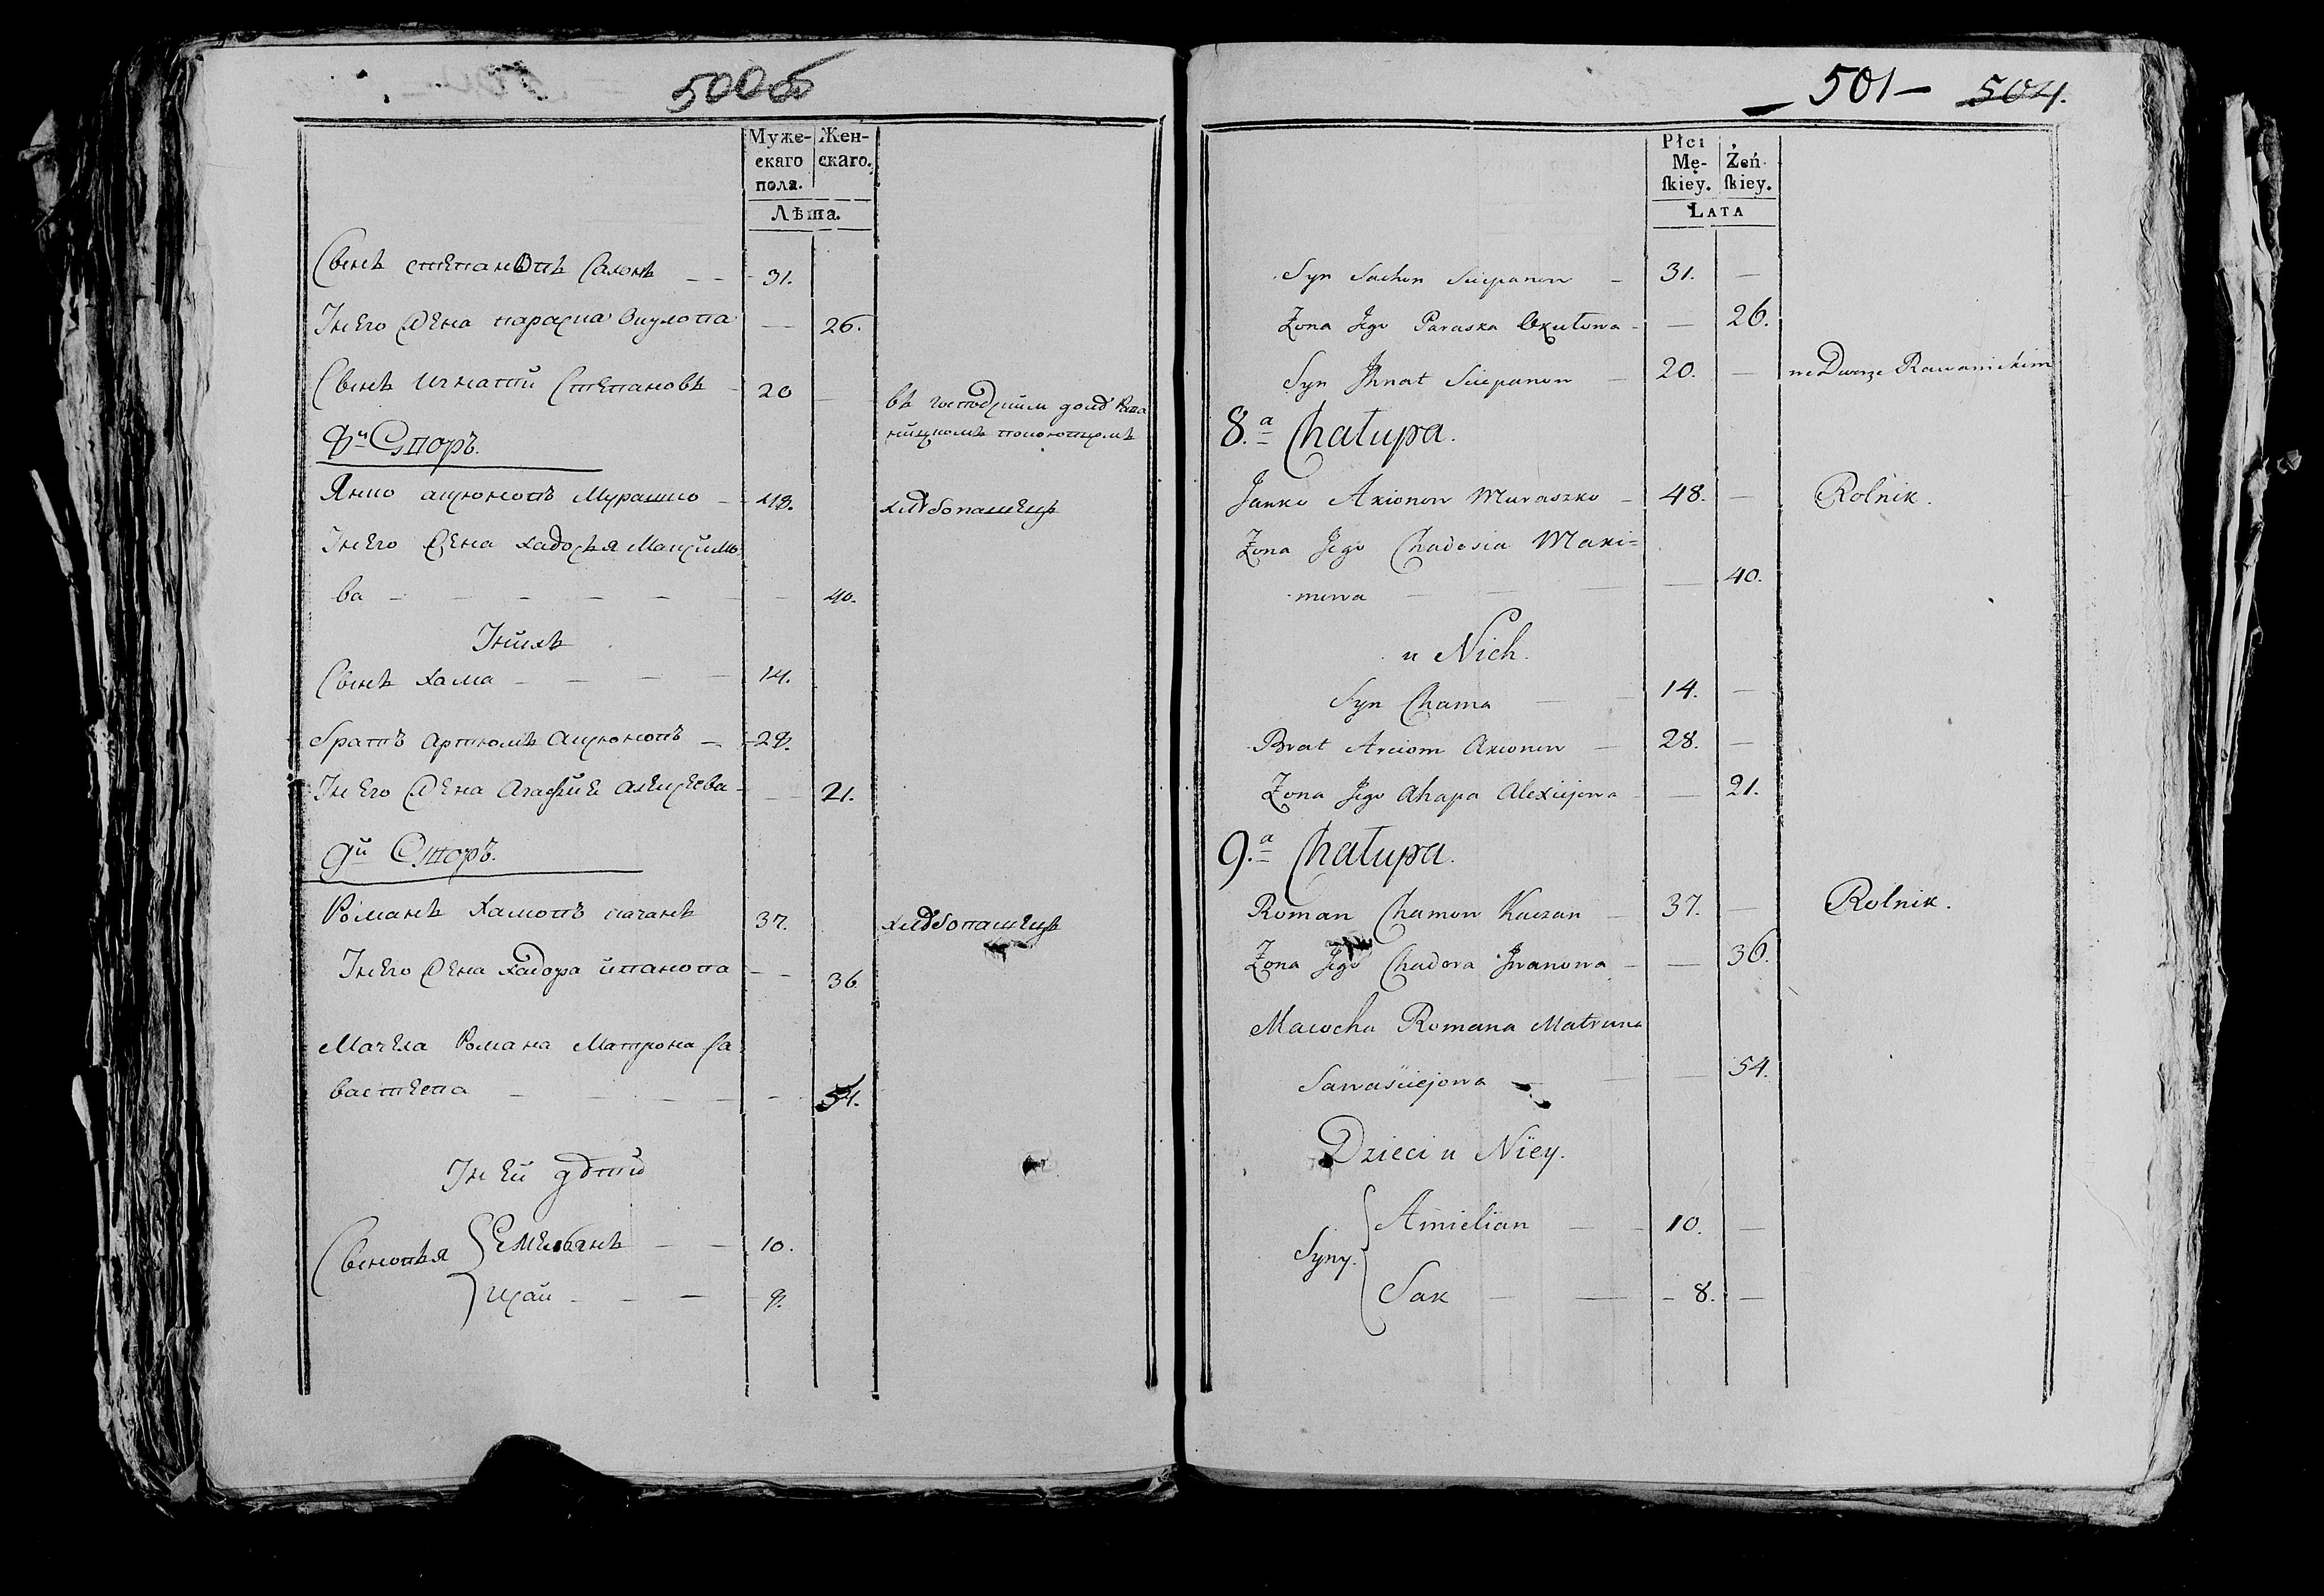 500об
Муже-
скаго
поля.
Жен-
скаго.
Лѣта.
Сынъ Степановъ Сахонъ — — 31.
Унего жена параска Окулова — 26.
Сынъ игнатій Степановъ — 20 —
въ господскомъ домѣ
8й Дворъ.
Янко аксюновъ Мурашко — 48. хлѣбопашецъ
Унего жена хадосья Максимо
ва — — — — — — 40.
Унихъ
Сынъ хама — — — — 14.
братъ артіомъ аксюновъ — 28.
Унего жена Агафія алексѣева — — 21.
9й Дворъ.
Романъ хамовъ качанъ 37. хлѣбопашецъ
Унего жена хадора иванова — — 36.
Мачеха Романа Матрона Са
вастѣева — — — — — 54.
Уней дѣти
Сыновья { Емельянъ — — 10.
Исай — — — 8.
501 — 504.
Płci
Mę-
ſkiey.
Żeń-
ſkiey.
LATA
Syn Sachon Sciepanow — 31. —
Żona Jego Paraska Okułowa — — 26.
Syn Jhnat Sciepanow — 20. — we Dworze Rawanickim
8.a Chałupa.
Janko Axionow Muraszko — 48. — Rolnik.
Żona Jego Chadosia Maxi=
mowa — — — — 40.
u Nich.
Syn Chama — — 14. —
Brat Arciom Axionow — 28. —
Żona Jego Ahapa Alexiejowa — — 21.
9.a Chałupa.
Roman Chamow Kaczan — 37. — Rolnik.
Żona Jego Chadora Jwanowa — — 36.
Macocha Romana Matruna
Sawaściejowa — — — 54.
Dzieci u Niey.
Syny. { Amielian — — 10. —
Sak — — — 8. —